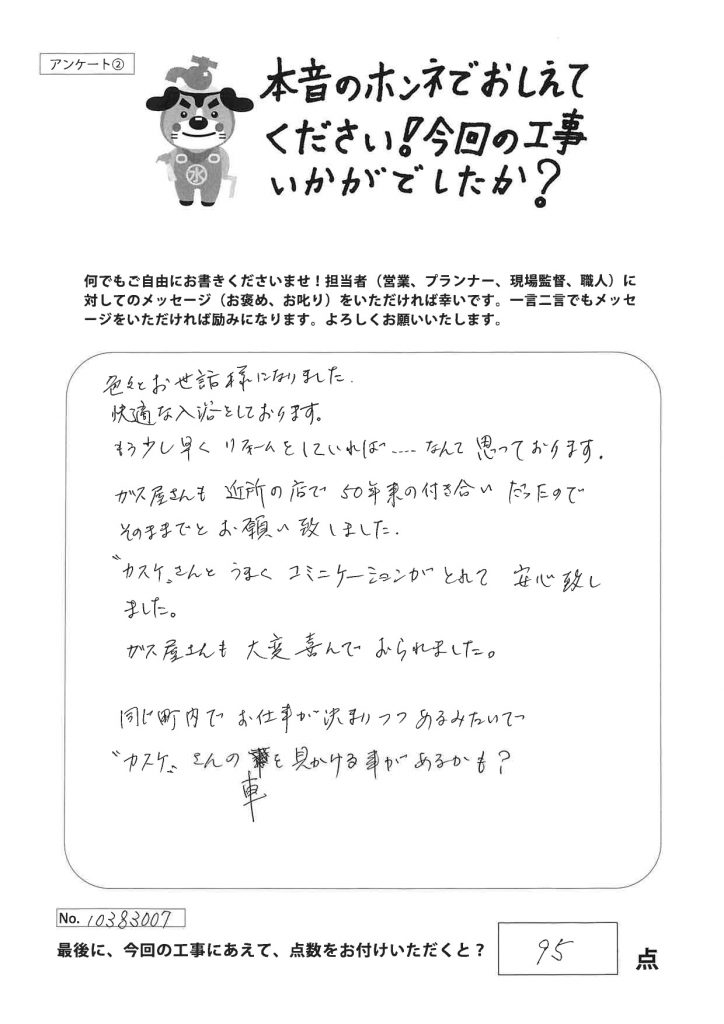 アンケート②
本音のホンネでおしえて
ください!今回の工事
いかがでしたか?
水
何でもご自由にお書きくださいませ!担当者(営業、プランナー、現場監督、職人)に
対してのメッセージ(お褒め、お叱り)をいただければ幸いです。一言二言でもメッセ
ージをいただければ励みになります。よろしくお願いいたします。
色々とお世話様になりました.
快適な入浴としております。
もう少し早く リフォームとしていれば……なんて 思っております.
ガス屋さんも 近所の店で 50年来の付き合い だったので
そのままでと お願い致しました.
〝カスケ〟さんと うまく コミニケーションが とれて 安心致し
ました。
ガス屋さんも 大変 喜んで おられました。
同じ町内で お仕事が決まりつつ あるみたいで
〝カスケ〟さんの を見かける事があるかも?
車
No. 10383007
最後に、今回の工事にあえて、点数をお付けいただくと? 95 点